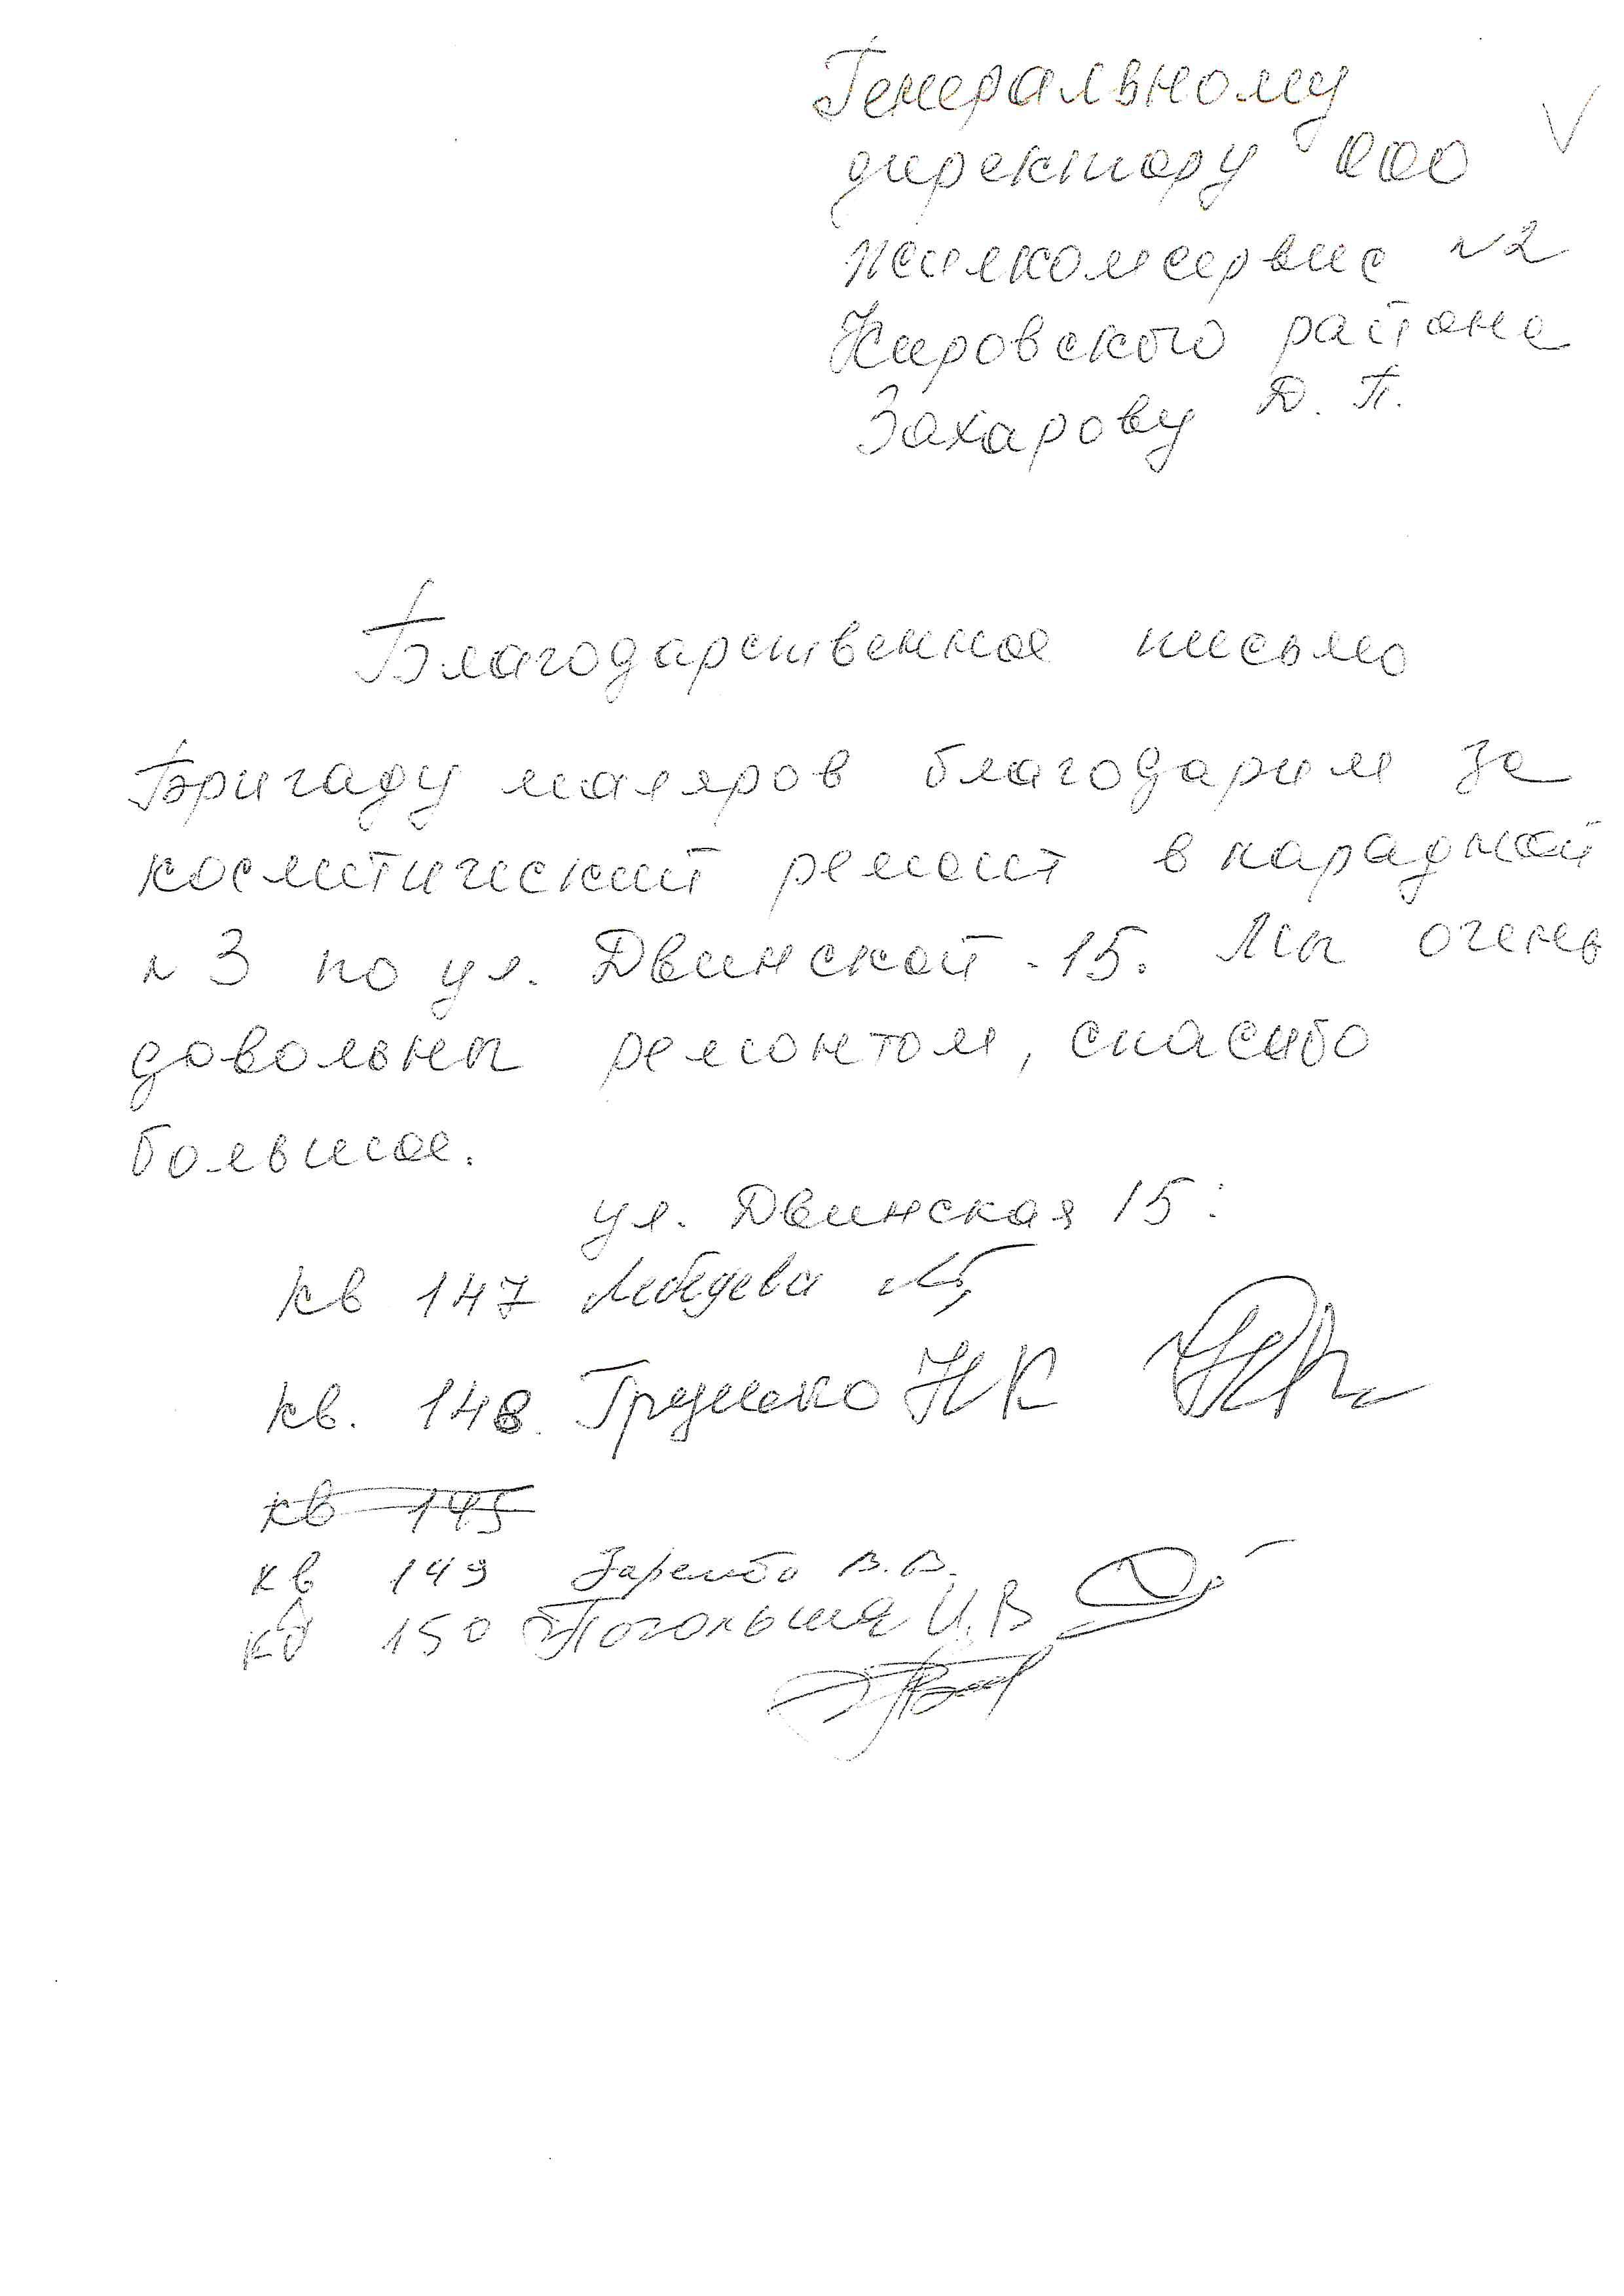 Генеральному
директору ООО
жилкомсервис №2
Кировского района
Захарову Д. П.
Благодарственное письмо
Бригаду маляров благодарим за
косметический ремонт в парадной
№ 3 по ул. Двинской - 15. Мы очень
довольны ремонтом, спасибо
большое.
ул. Двинская 15:
кв 147 Лебедева
кв. 148. Н К
кв 145
кв 149 Зарембо В. В.
кв 150 И. В